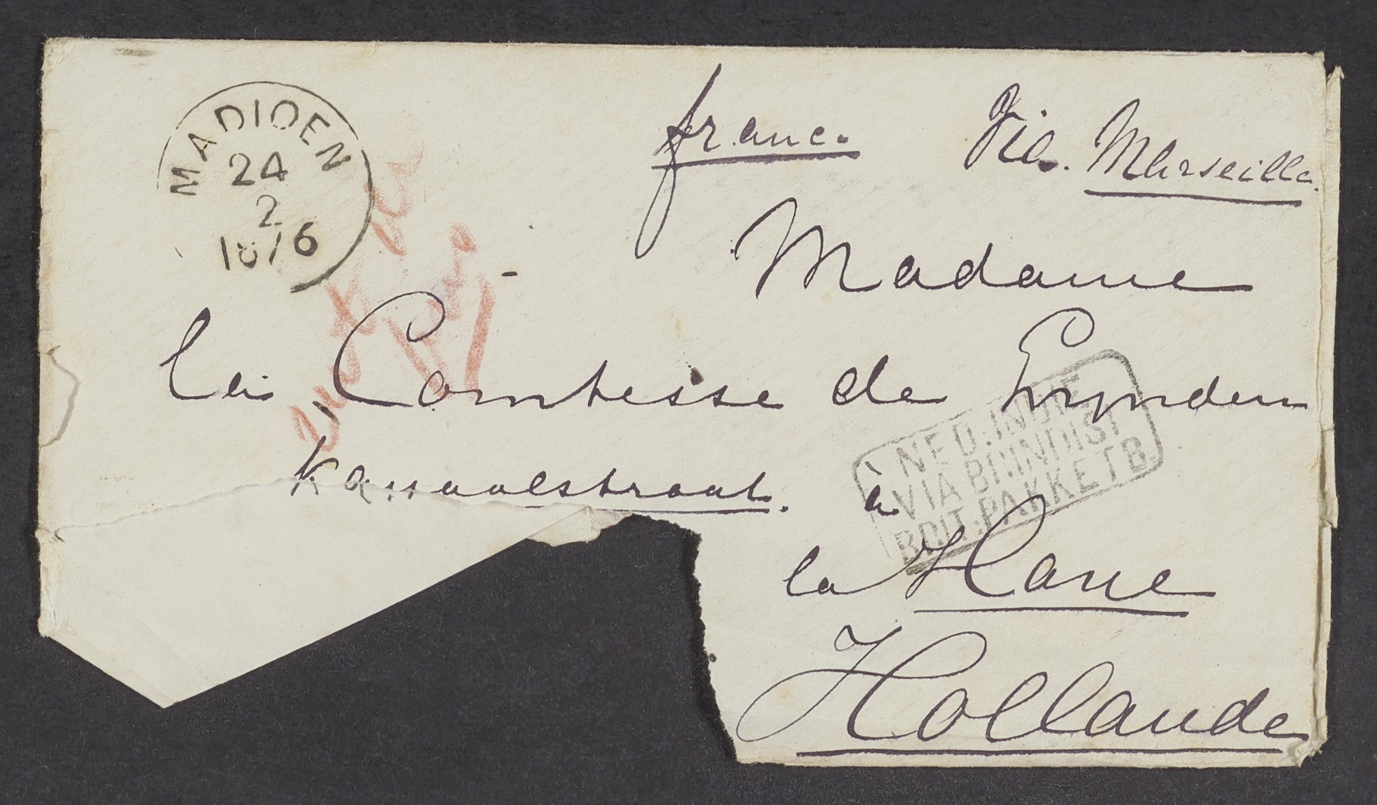 MADIOEN
24
2
1876
franco
Via Marseille
Madame
la Comtesse de Rynden
Kanaalstraat. à
NED:INDIE
VIA BRINDISI
BRIT:PAKKETB.
la Haye
Hollande